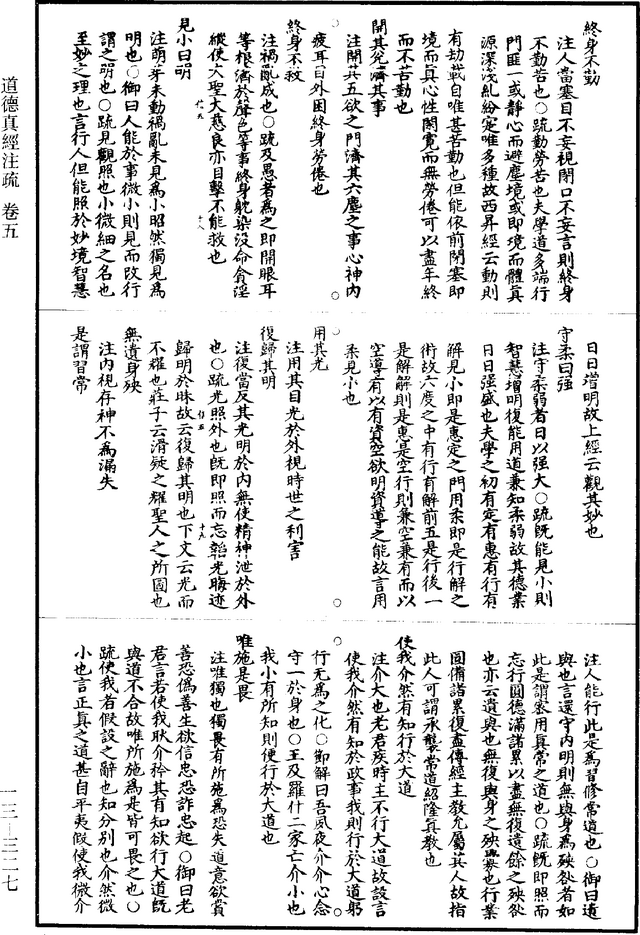 終身不勤
注人當塞目不妄視閉口不妄言則終身
不勤苦也○疏勤勞苦也夫學道多端行
門匪一或靜心而避塵境或即境而體真
源深淺糺紛寔唯多種故西昇經云動則
有劫載自唯甚苦勤也但能依前閉塞即
境而真心性閑寛而無勞倦可以盡年終
而不苦勤也
開其兊濟其事
注開其五欲之門濟其六塵之事心神内
疲耳目外困終身勞倦也
終身不救
注禍亂成也○疏及愚者為之即開眼耳
等根濟於聲色等事終身躭染没命貪淫
縱使大聖大慈良亦目擊不能救也
見小曰明
注萌芽未動禍亂未見為小昭然獨見為
明也○御曰人能於事微小則見而改行
謂之明也○疏見觀照也小微細之名也
至妙之理也言行人但能照於妙境智慧
日日增明故上經云觀其妙也
守柔曰强
注守柔弱者日以强大○疏既能見小則
智慧增明復能用道兼知柔弱故其德業
日日强盛也夫學之初有定有惠有行有
解見小即是惠定之門用柔即是行解之
術故六度之中有行有解前五是行後一
是解解則是惠是空行則兼空兼有而以
空導有以有資空欲明資導之能故言用
柔見小也
用其光
注用其目光於外視時世之利害
復歸其明
注復當反其光明於内無使精神泄於外
也○疏光照外也既即照而忘韜光晦迹
歸明於昧故云復歸其明也下文云光而
不耀也莊子云滑疑之耀聖人之所圖也
無遺身殃
注内視存神不為漏失
是謂習常
注人能行此是為習修常道也○御曰遺
與也言還守内明則無與身為殃咎者如
此是謂密用真常之道也○疏既即照而
忘行圓德滿諸累以盡無復遺餘之殃咎
也亦云遺與也無復與身之殃釁也行業
圓備諸累復盡傳經主教允屬其人故指
此人可謂承襲常道紹隆真教也
使我介然有知行於大道
注介大也老君疾時主不行大道故設言
使我介然有知於政事我則行於大道躬
行無為之化○節解曰吾夙夜介介心念
守一於身也○王及羅什二家亡介小也
我小有所知則便行於大道也
唯施是畏
注唯獨也獨畏有所施為恐失道意欲賞
善恐偽善生欲信忠恐詐忠起○御曰老
君言若使我耿介矜其有知欲行大道既
與道不合故唯所施為是皆可畏之也○
疏使我者假設之辭也知分別也介然微
小也言正真之道甚自平夷假使我微介
道德真經注疏　卷五
一三—三二七